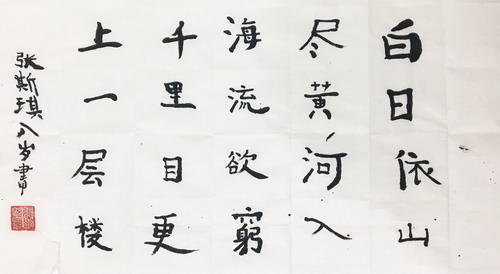 白日依山
尽黄河入
海流欲窮
千里目更
上一层楼
张斯琪八岁書